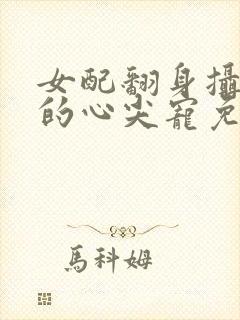 女配翻身攝
的心尖寵免
馬科姆